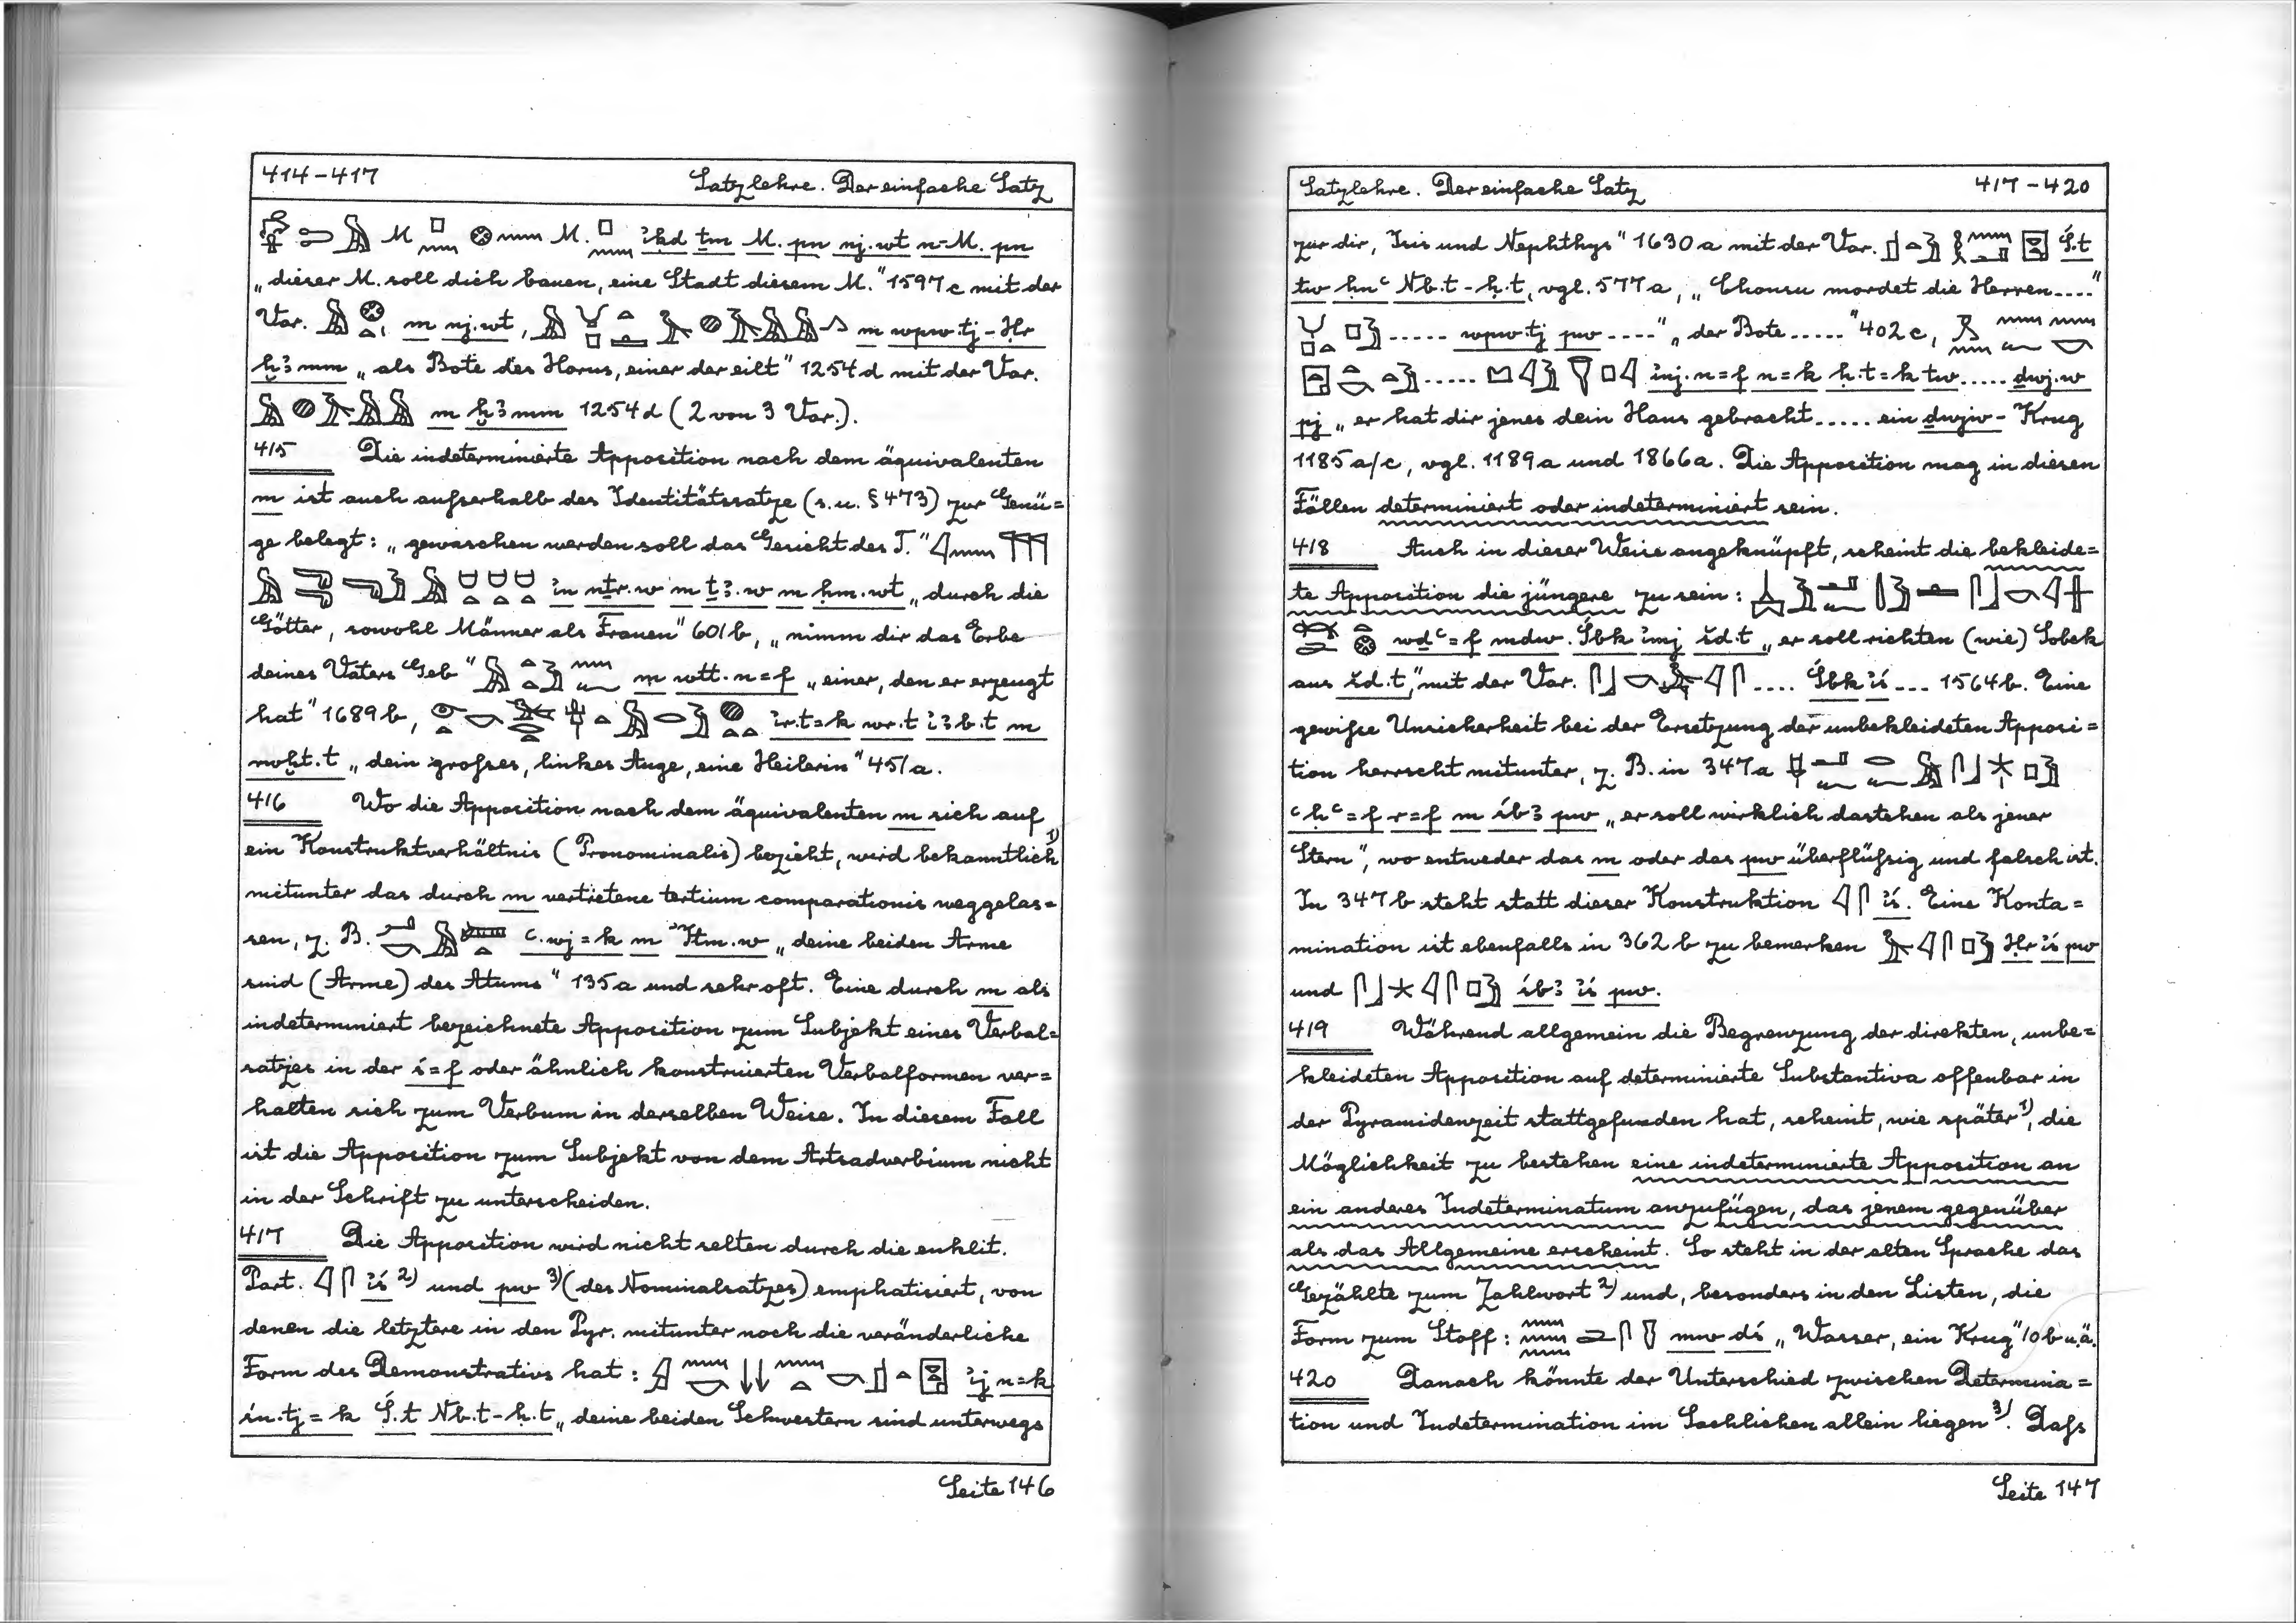 414-417 Satzlehre. Der einfache Satz
M. M. ꞽḳd ṯm M. pn nj.wt n=M. pn
„dieser M. soll dich bauen, eine Stadt diesem M." 1597c mit der
Var. m nj.wt, m wpw.tj-Ḥr
ḫꜣmm „als Bote des Horus, einer der eilt" 1254d mit der Var.
m ḫꜣmm 1254d (2 von 3 Var.).
415 Die indeterminierte Apposition nach dem äquivalenten
m ist auch außerhalb des Identitätssatzes (s.u. §473) zur Genü=
ge belegt: „gewaschen werden soll das Gesicht des T."
ꞽn nṯr.w m ṯꜣ.w m ḥm.wt „durch die
Götter, sowohl Männer als Frauen" 601b, „nimm dir das Erbe
deines Vaters Geb" m wtt.n=f „einer, den er erzeugt
hat" 1689b, ꞽr.t=k wr.t ꞽꜣb.t m
nwḫt.t „dein großes, linkes Auge, eine Heilerin" 451a.
416 Wo die Apposition nach dem äquivalenten m sich auf
ein Konstruktverhältnis (Pronominalis) bezieht, wird bekanntlich 1)
mitunter das durch m vertretene tertium comparationis weggelas=
sen, z. B. ꜥ.wj=k m ꞽtm.w „deine beiden Arme
sind (Arme) des Atums" 135a und sehr oft. Eine durch m als
indeterminiert bezeichnete Apposition zum Subjekt eines Verbal=
satzes in der ś=f oder ähnlich konstruierten Verbalformen ver=
halten sich zum Verbum in derselben Weise. In diesem Fall
ist die Apposition zum Subjekt von dem Artsadverbium nicht
in der Schrift zu unterscheiden.
417 Die Apposition wird nicht selten durch die enklit.
Part. 𓇋𓋴 ꞽś 2) und pw 3) (des Nominalsatzes) emphatisiert, von
denen die letztere in den Pyr. mitunter noch die veränderliche
Form des Demonstrativs hat: ꞽj n=k
śn.tj=k Ś.t Nb.t-ḥ.t „deine beiden Schwestern sind unterwegs
Seite 146
Satzlehre. Der einfache Satz 417-420
zur dir, Isis und Nephthys" 1630a mit der Var. Ś.t
tw ḥnꜥ Nb.t-ḥ.t, vgl. 577a, „Chonsu mordet die Herren...."
..... wpw.tj pw ...." „der Bote....." 402c,
..... ꞽnj.n=f n=k ḥ.t=k tw..... dwj.w
pj „er hat dir jenes dein Haus gebracht..... ein dwjw-Krug
1185a/c, vgl. 1189a und 1866a. Die Apposition mag in diesen
Fällen determiniert oder indeterminiert sein.
418 Auch in dieser Weise angeknüpft, scheint die bekleide=
te Apposition die jüngere zu sein:
wḏꜥ=f mdw. Śbk ꞽmj šd.t „er soll richten (wie) Sobek
aus šd.t," mit der Var. .... Śbk ꞽś ... 1564b. Eine
gewiße Unsicherheit bei der Ersetzung der unbekleideten Apposi=
tion herrscht mitunter, z. B. in 347a
ꜥḥꜥ=f r=f m śbꜣ pw „er soll wirklich dastehen als jener
Stern", wo entweder das m oder das pw überflüßig und falsch ist.
In 347b steht statt dieser Konstruktion 𓇋𓋴 ꞽś. Eine Konta=
mination ist ebenfalls in 362b zu bemerken Ḥr ꞽś pw
und śbꜣ ꞽś pw.
419 Während allgemein die Begrenzung der direkten, unbe=
kleideten Apposition auf determinierte Substantiva offenbar in
der Pyramidenzeit stattgefunden hat, scheint, wie später 1), die
Möglichkeit zu bestehen eine indeterminierte Apposition an
ein anderes Indeterminatum anzufügen, das jenem gegenüber
als das Allgemeine erscheint. So steht in der alten Sprache das
Gezählte zum Zahlwort 2) und, besonders in den Listen, die
Form zum Stoff: mw dś „Wasser, ein Krug" 10b u.ä.
420 Danach könnte der Unterschied zwischen Determina=
tion und Indetermination im Sachlichen allein liegen 3). Daß
Seite 147